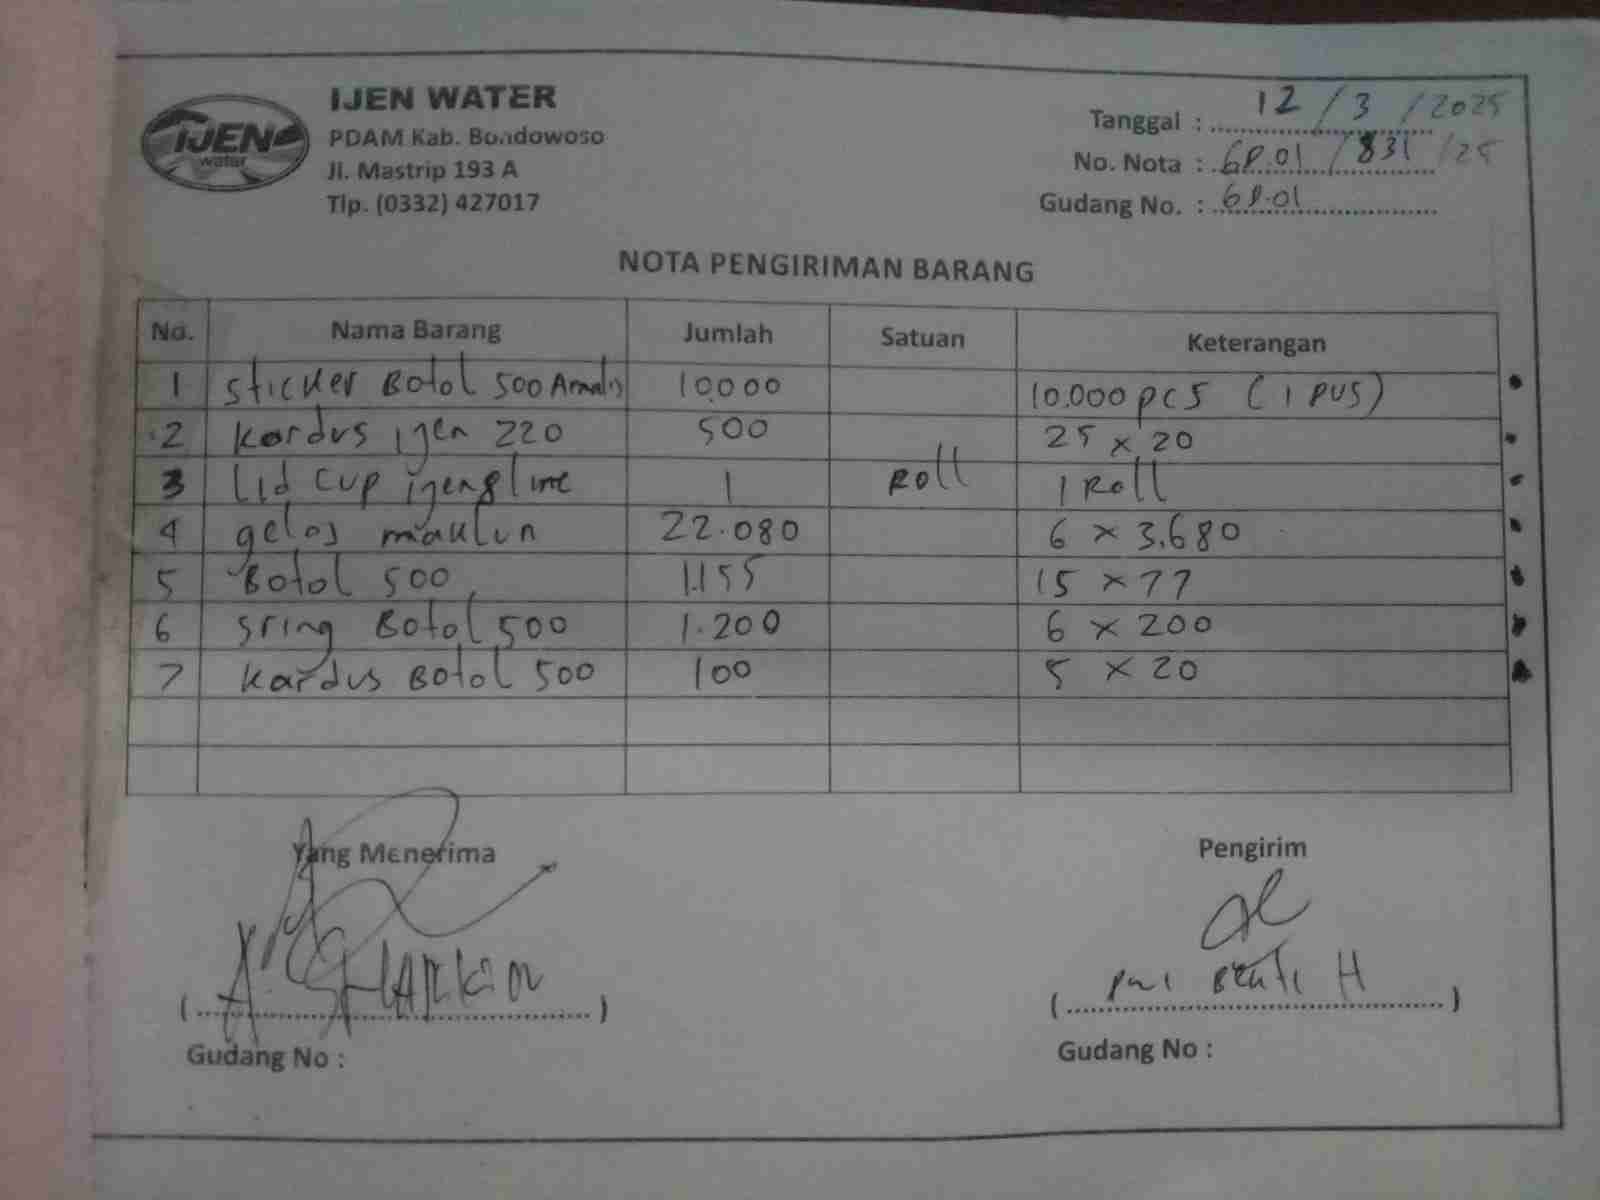 IJEN water
IJEN WATER
PDAM Kab. Bondowoso
Jl. Mastrip 193 A
Tlp. (0332) 427017
Tanggal : 12 / 3 / 2025
No. Nota : 6P.01 / 831 / 25
Gudang No. : 6P.01
NOTA PENGIRIMAN BARANG
No. Nama Barang Jumlah Satuan Keterangan
1 Sticker Botol 500 10.000 10.000 pcs (1 pus)
2 kardus ijen 220 500 25 x 20
3 Lid cup 1 Roll 1 Roll
4 gelas maklun 22.080 6 x 3.680
5 Botol 500 1.155 15 x 77
6 sring Botol 500 1.200 6 x 200
7 kardus Botol 500 100 5 x 20
Yang Menerima
Pengirim
( A. )
( H )
Gudang No :
Gudang No :